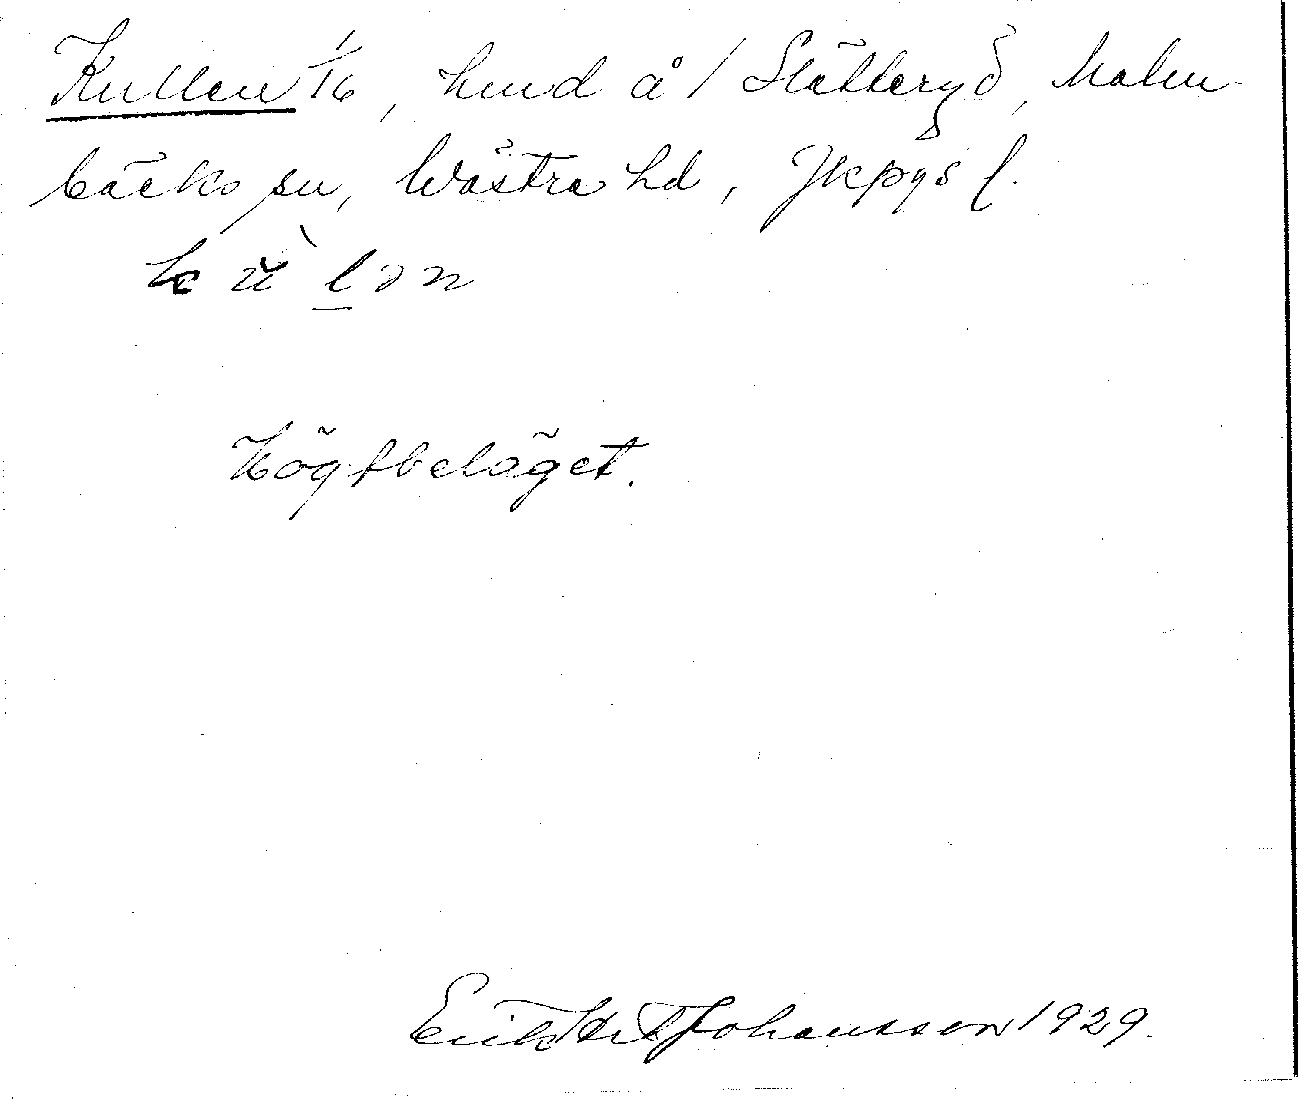 Kullen 1/16, hmd å 1 Slätteryd, Malm
bäcks sn, Västra hd, Jkpgs l.
kùlən
Högtbeläget.
Johansson 1929.